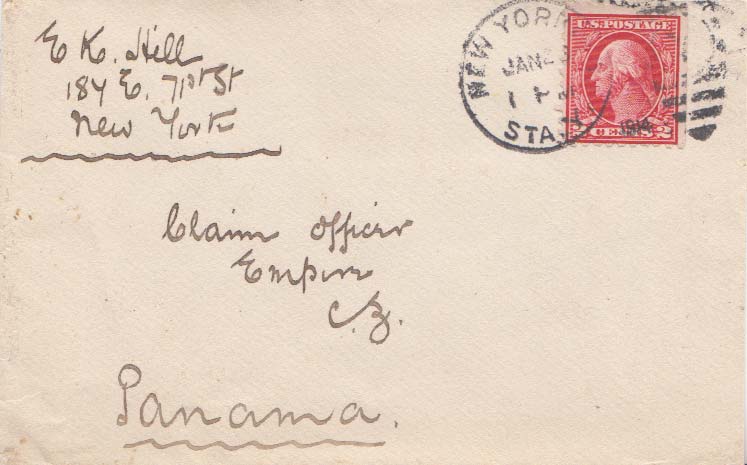 E K. Hill
184 E. 71st St
New York
NEW YORK
JAN 2
1 P
STA.
U.S. POSTAGE
2 CENTS 2
1914
Claim Officer
Empire
C.Z.
Panama.